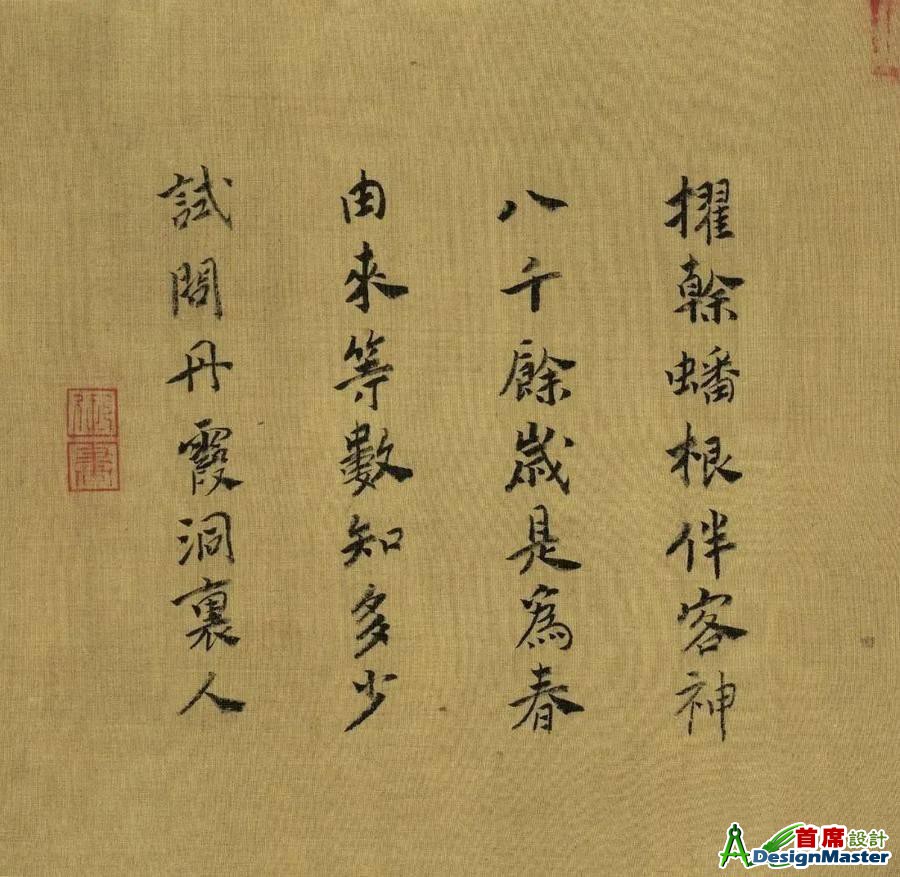 擢榦蟠根伴客神
八千餘歲是爲春
由來等數知多少
試問丹霞洞裏人
御書
首席設計
DesignMaster